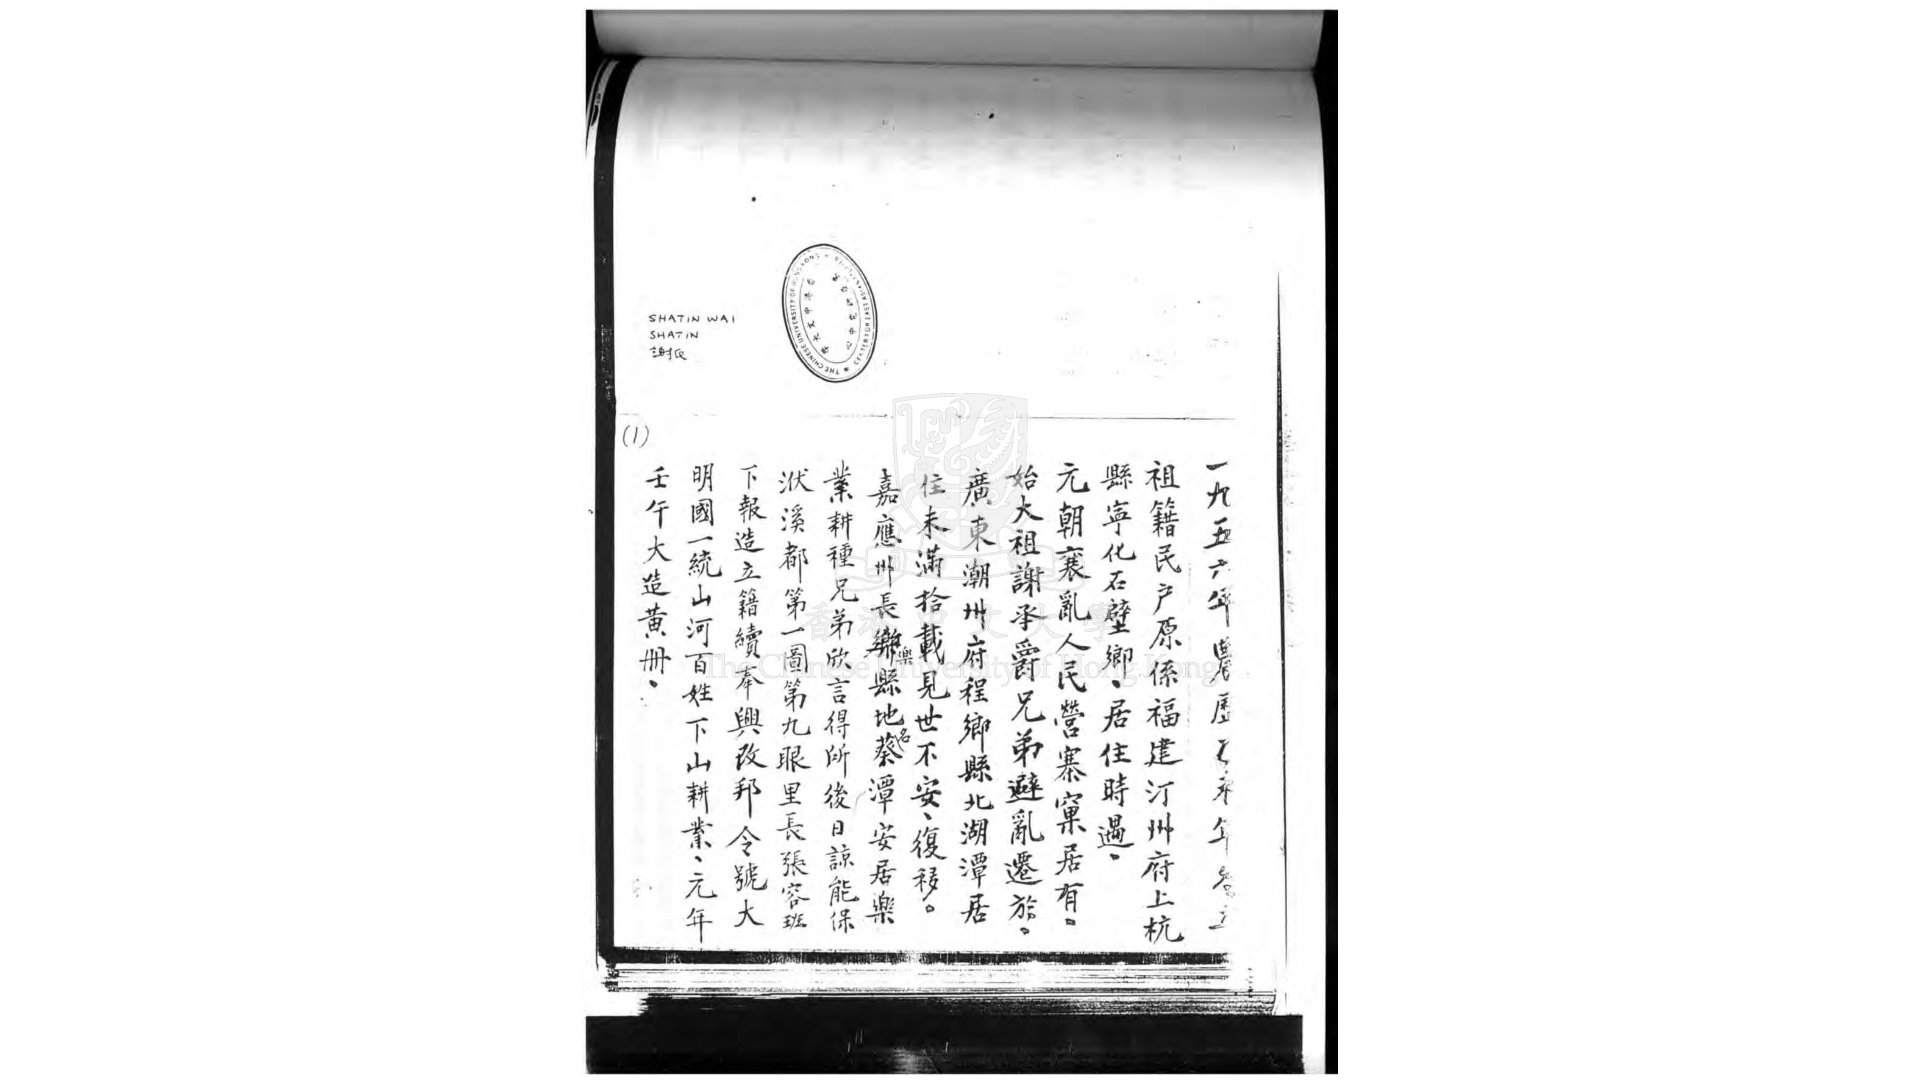 SHATIN WAI
SHATIN
謝氏
(1)
一九五六年農歷
祖籍民户原係福建汀州府上杭
縣寧化石壁鄉、居住時遇、
元朝衰亂人民營寨窠居有。
始大祖謝承爵兄弟避亂遷於。
廣東潮州府程鄉縣北湖潭居
住未滿拾載見世不安、復移。
嘉應州長樂縣地名蔡潭安居樂
業耕種兄弟欣言得所後日諒能保
洑溪都第一圖第九眼里長張容班
下報造立籍續奉興改邦令號大
明國一統山河百姓下山耕業、元年
壬午大造黃冊、
香港中文大學
The Chinese University of Hong Kong
THE CHINESE UNIVERSITY OF HONG KONG